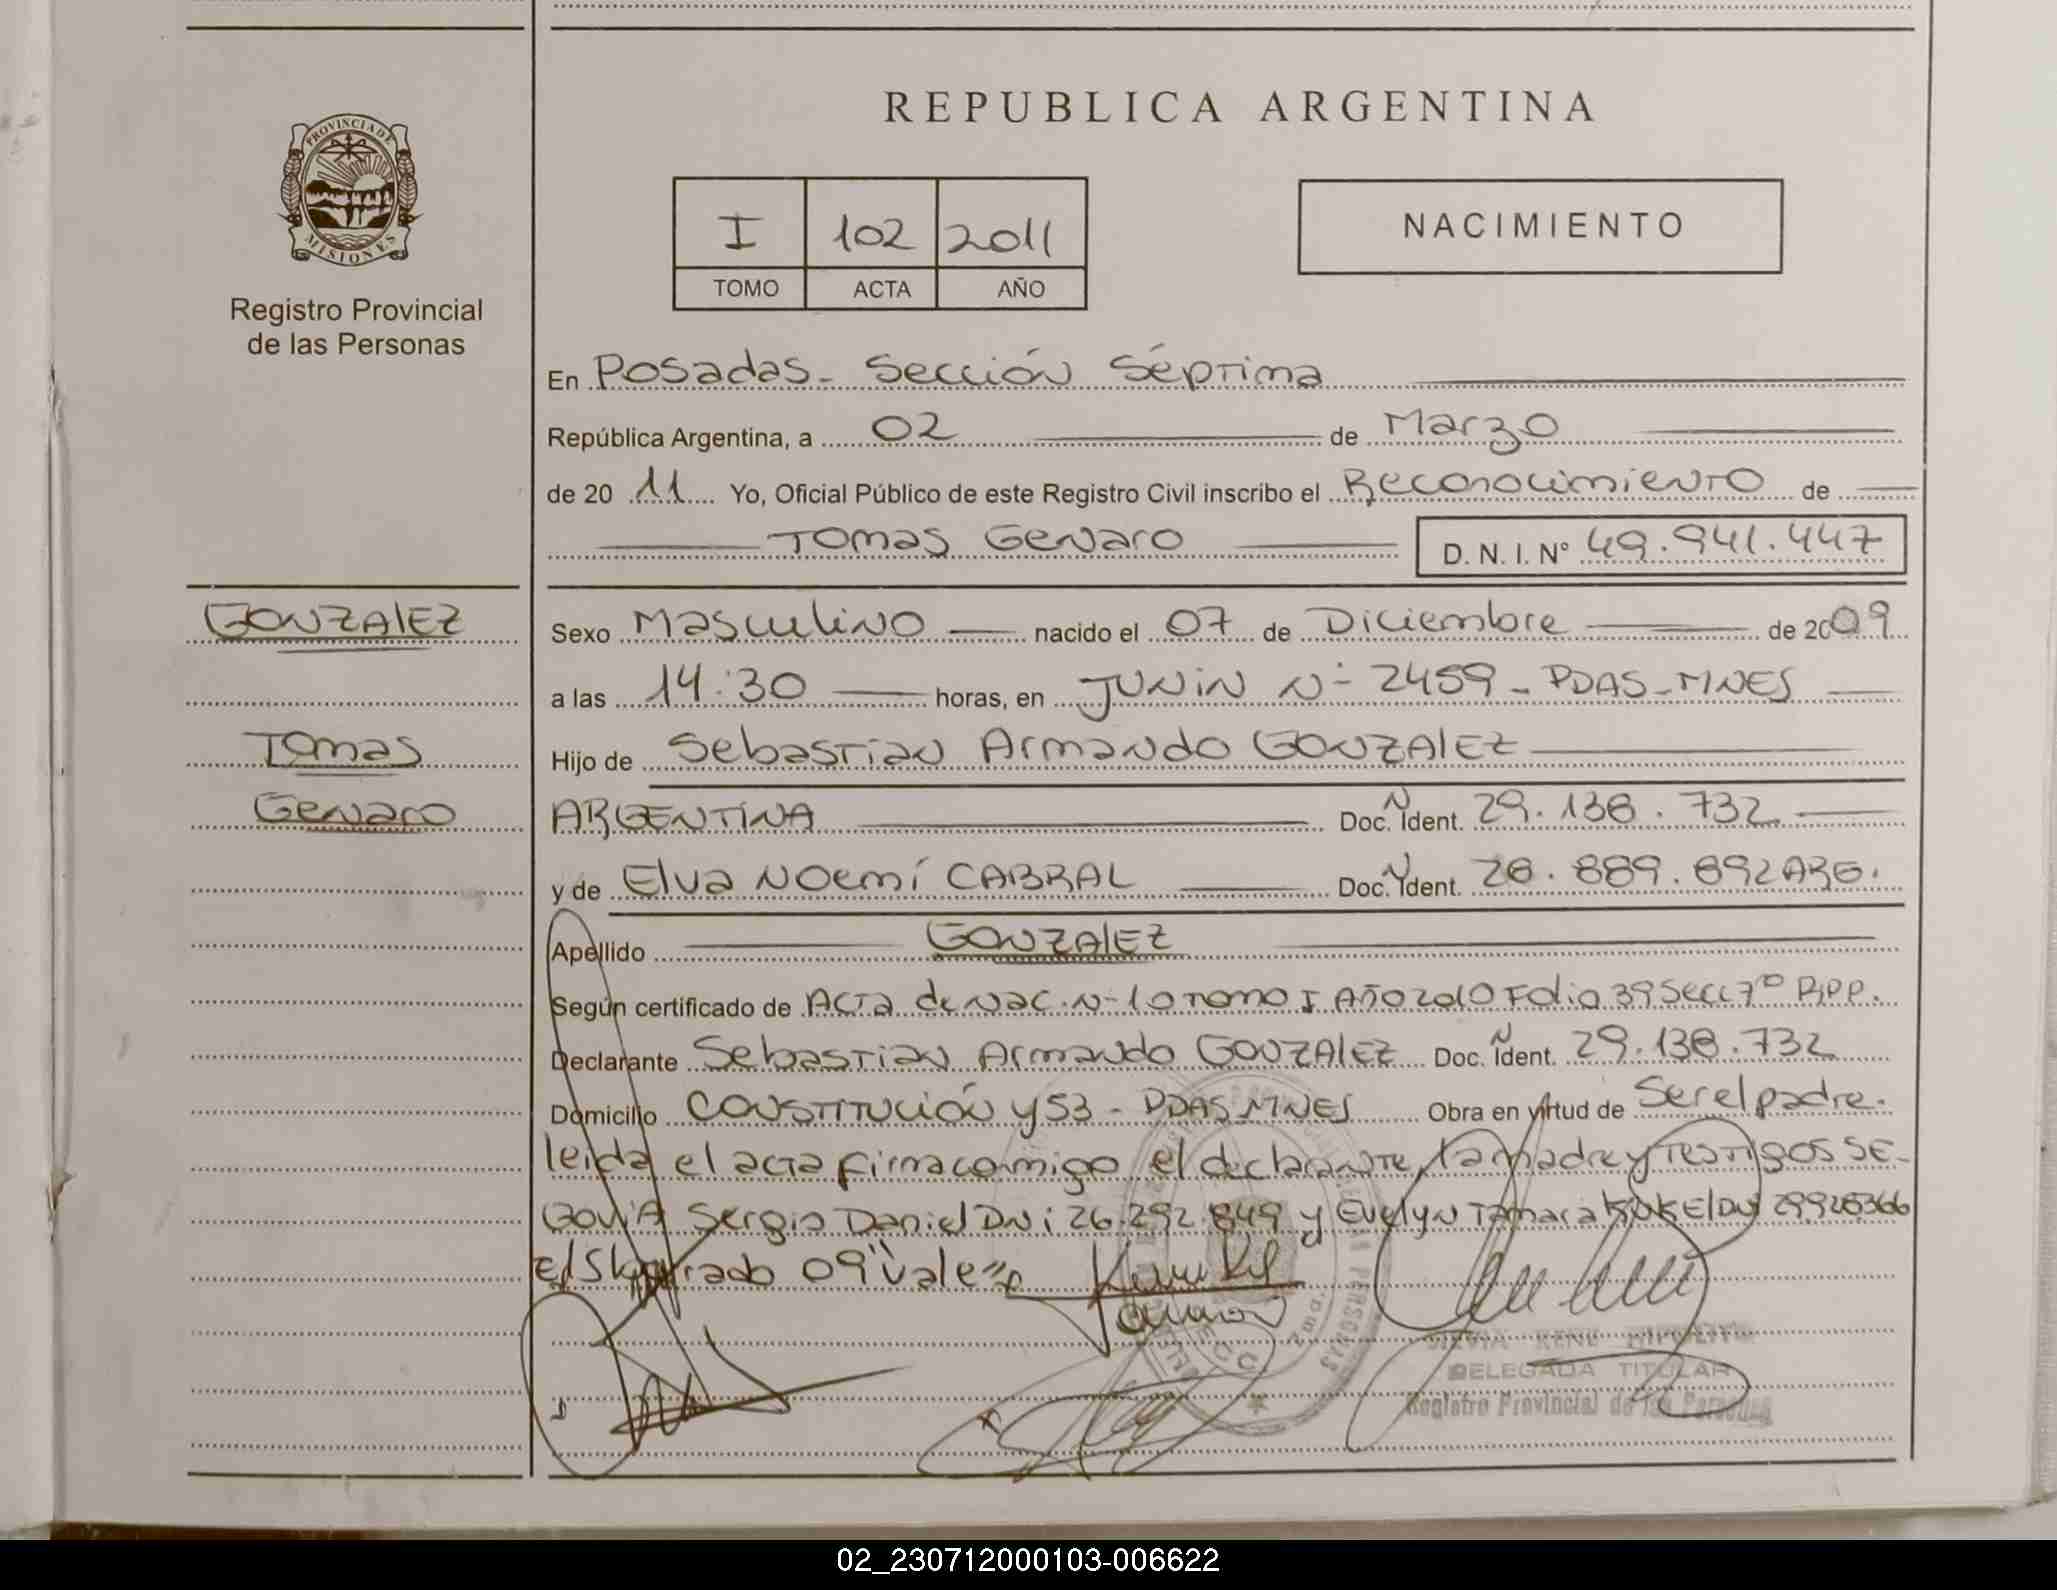 REPUBLICA ARGENTINA
PROVINCIA DE
MISIONES
Registro Provincial
de las Personas
I 102 2011
TOMO ACTA AÑO
NACIMIENTO
En Posadas - Sección Séptima
República Argentina, a 02 de Marzo
de 20 11 Yo, Oficial Público de este Registro Civil inscribo el Reconocimiento de
Tomas Genaro D. N. I. N° 49.941.447
GONZALEZ
Tomas
Genaro
Sexo Masculino nacido el 07 de Diciembre de 2009
a las 14:30 horas, en JUNIN N- 2459 - PDAS - MNES
Hijo de Sebastian Armando GONZALEZ
ARGENTINA Doc. N Ident. 29.138.732
y de Elva Noemí CABRAL Doc. N Ident. 28.889.892 ARG.
Apellido GONZALEZ
Según certificado de ACTA de Nac. N- 10 Tomo I Año 2010 Folio 39 Secc 7° RPP.
Declarante Sebastian Armando GONZALEZ Doc. N Ident. 29.138.732
Domicilio CONSTITUCIÓN y 53 - PDAS MNES Obra en virtud de Ser el padre.
leida el acta firma conmigo el declarante, la madre y testigos SE-
GOVIA Sergio Daniel DNi 26.292.849 y Evelyn Tamara KUKEL DNi 29.928366
el 09 "Vale"
DELEGADA TITULAR
Registro Provincial de las Personas
02_230712000103-006622